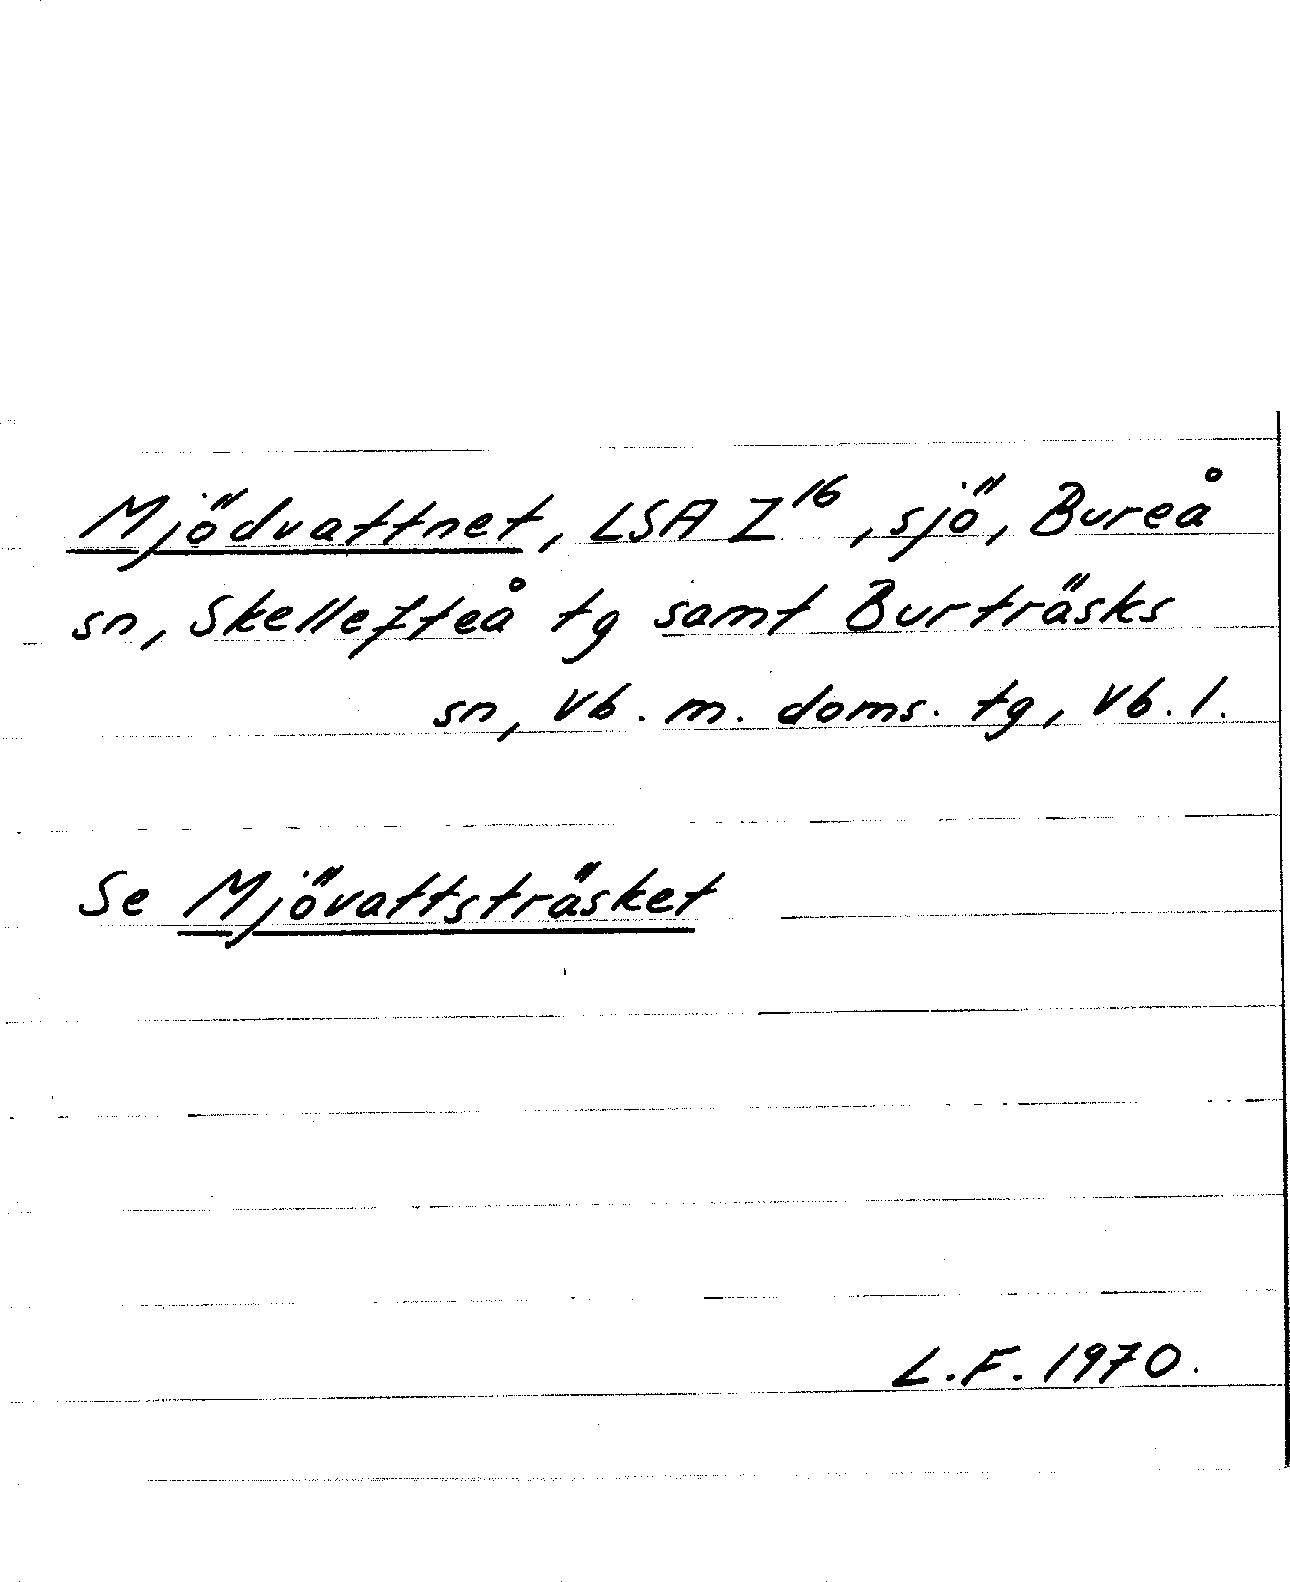 Mjödvattnet, LSA Z16, sjö, Bureå
sn, Skellefteå tg samt Burträsks
sn, Vb. m. doms. tg, Vb. l.
Se Mjövattsträsket
L.F. 1970.